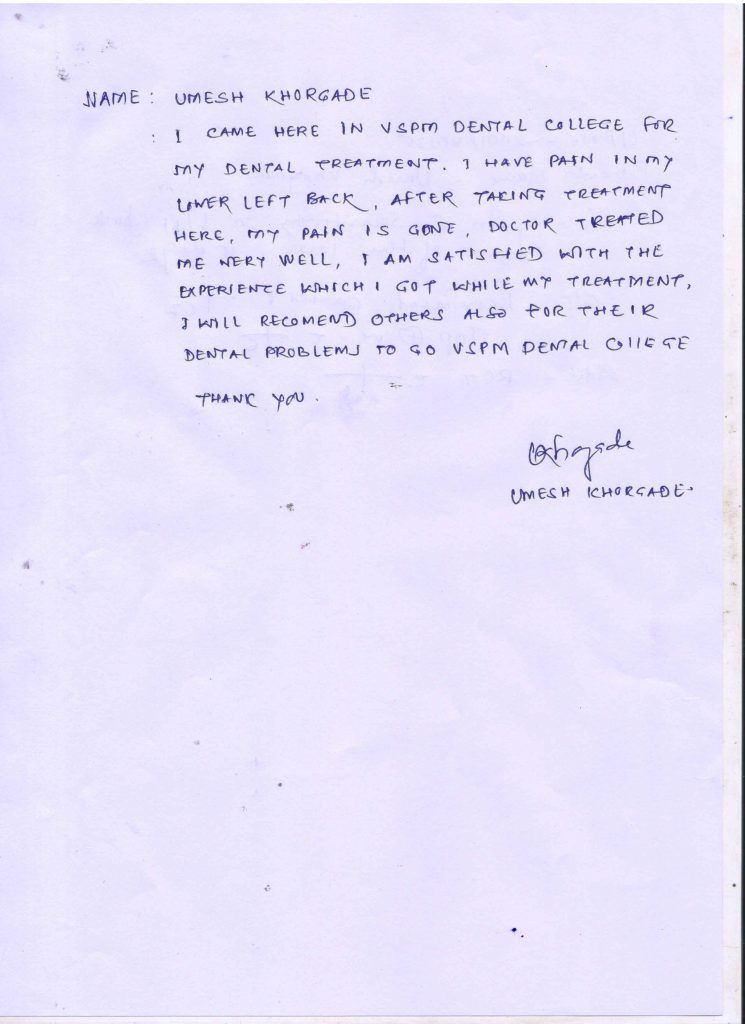 NAME: UMESH KHORGADE
: I CAME HERE IN VSPM DENTAL COLLEGE FOR
MY DENTAL TREATMENT. I HAVE PAIN IN MY
LOWER LEFT BACK, AFTER TAKING TREATMENT
HERE, MY PAIN IS GONE, DOCTOR TREATED
ME VERY WELL, I AM SATISFIED WITH THE
EXPERIENCE WHICH I GOT WHILE MY TREATMENT,
I WILL RECOMEND OTHERS ALSO FOR THEIR
DENTAL PROBLEMS TO GO VSPM DENTAL COLLEGE
THANK YOU.
UKhorgade
UMESH KHORGADE.